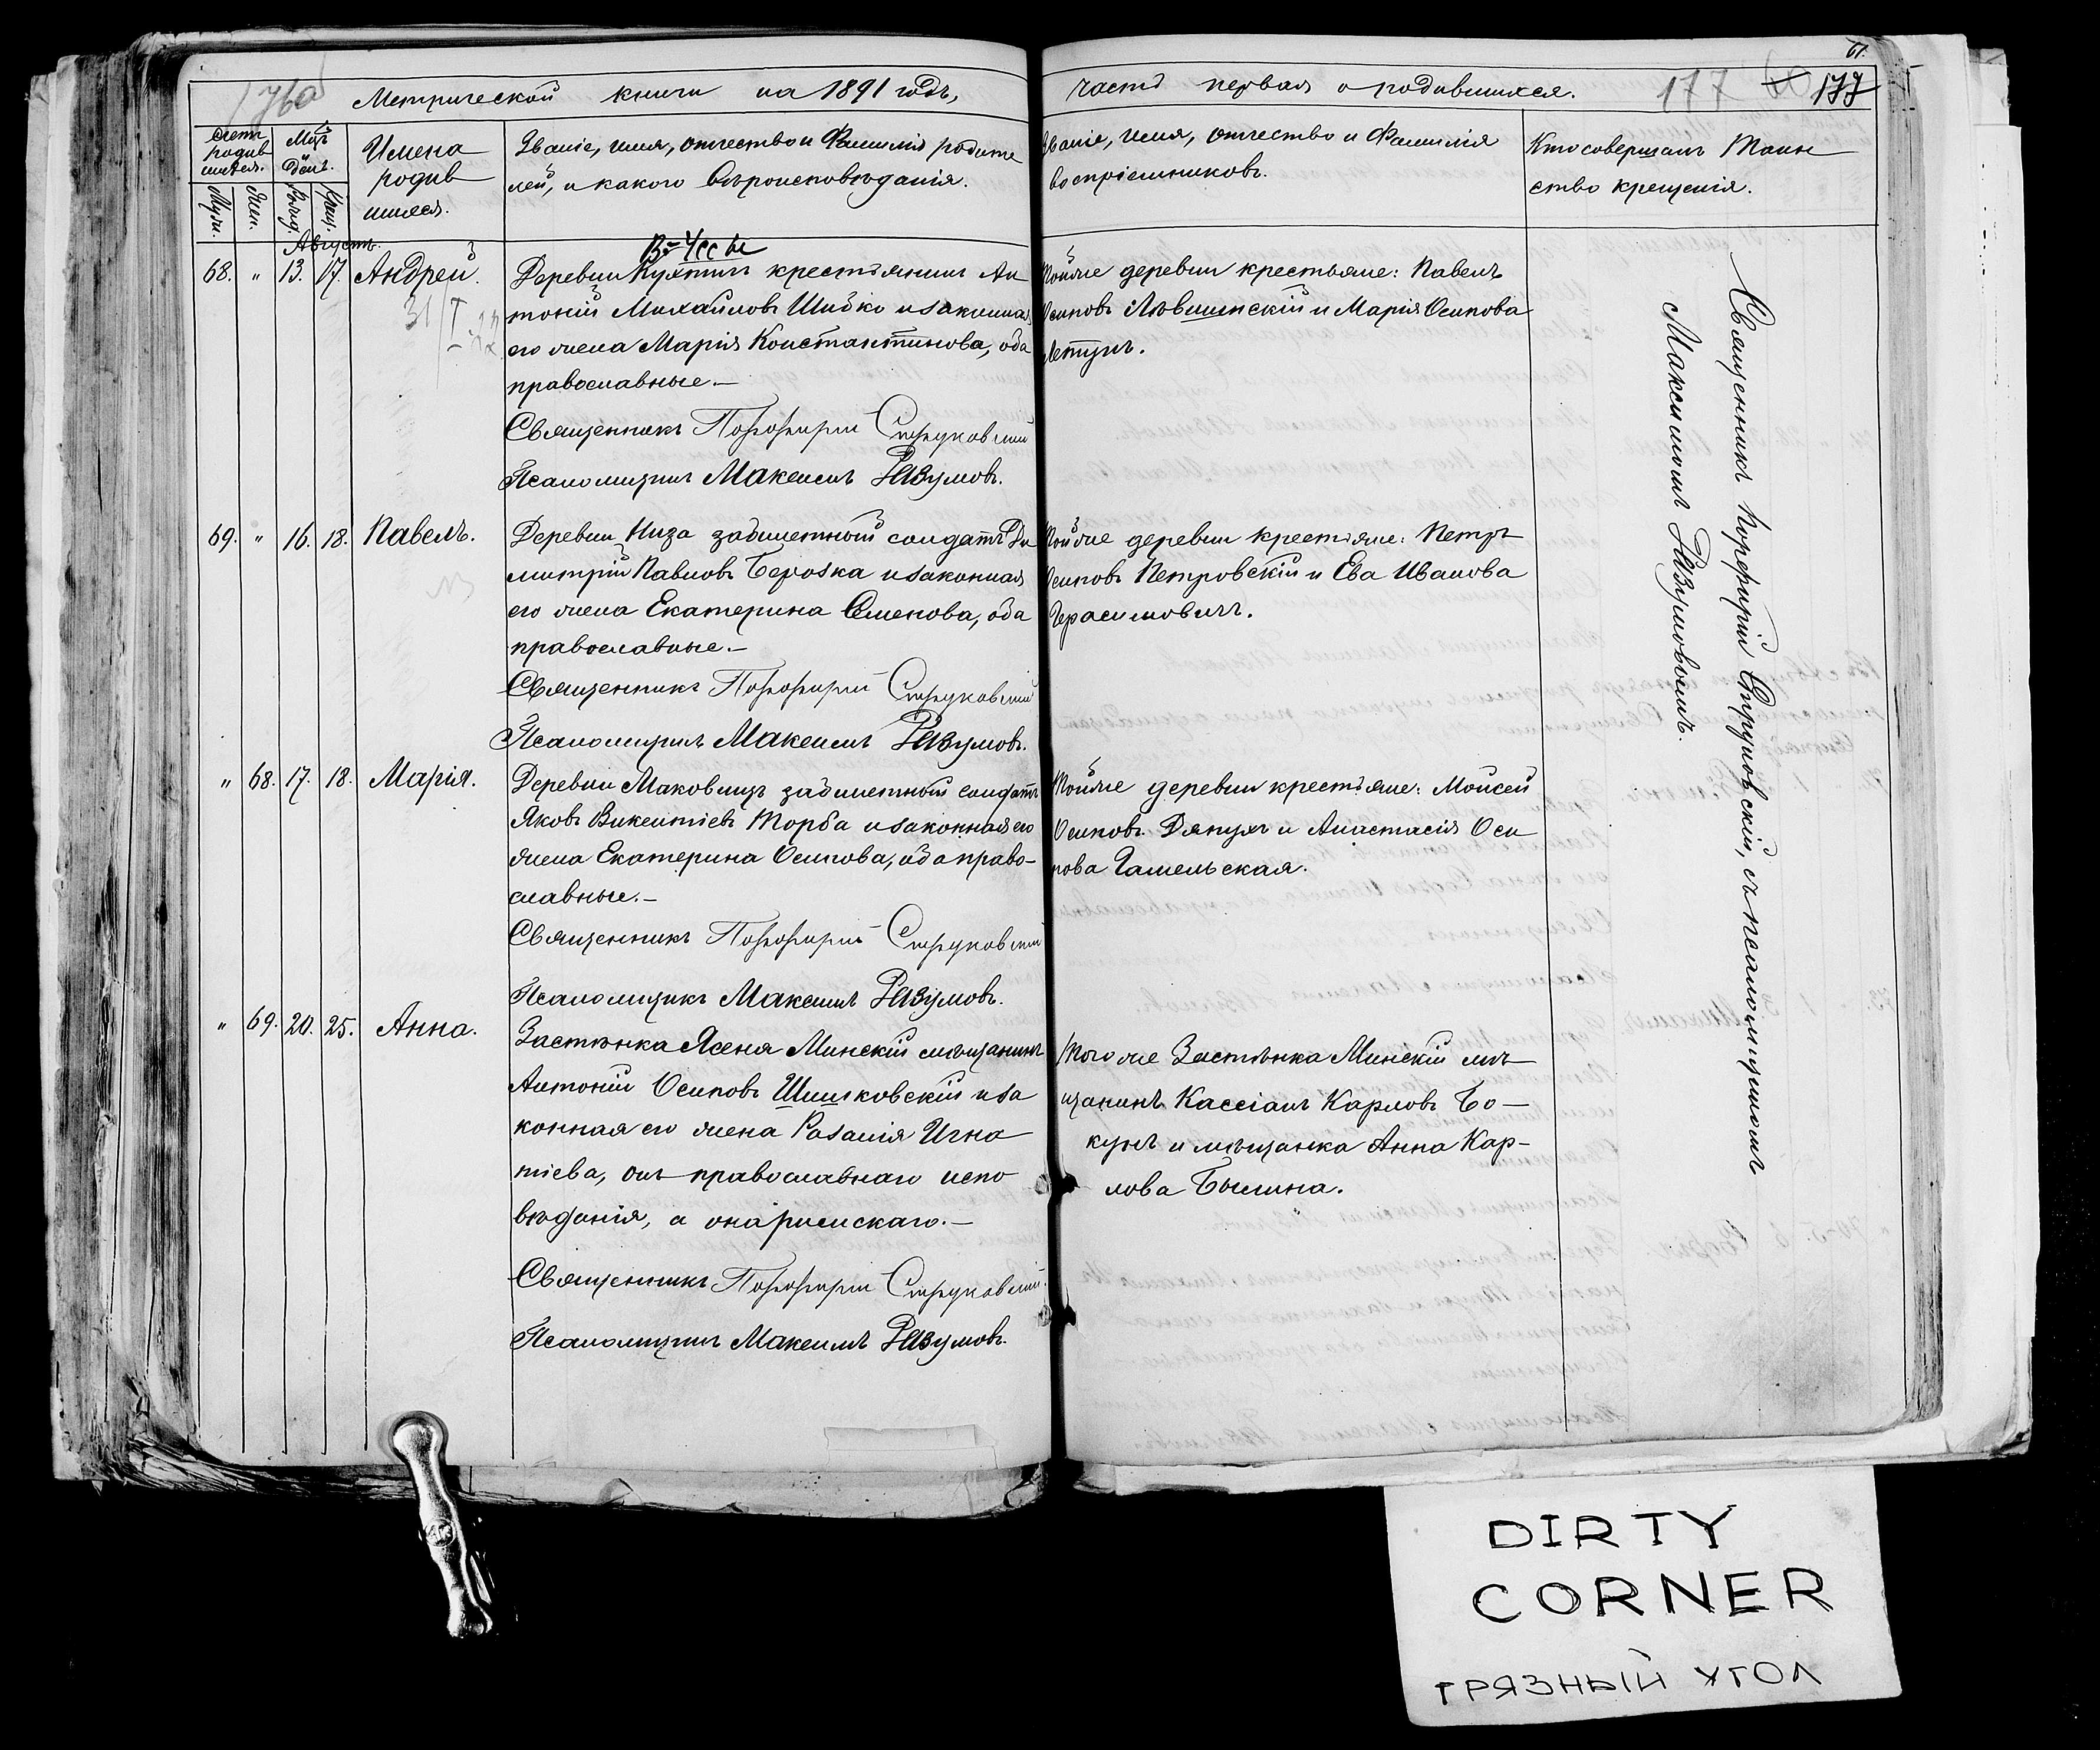 176об
Метрической книги на 1891 годъ,
часть первая о родившихся.
177
177
61.
Счетъ родив шихся.
Мѣц. и День.
Имена родив шихся.
Званіе, имя, отчество и Фамилія родите
лей, и какого вѣроисповѣданія.
Званіе, имя, отчество и Фамилія
воспріемниковъ.
Кто совершалъ Таин
ство крещенія.
Муж.
Жен.
Рожд.
Крещ.
Августъ.
68. " 13. 17. Андрей.
Деревни Кухтичъ крестьянинъ Ан
тоній Михайловъ Шибко и законная
его жена Марія Константинова, оба
православные.—
Священникъ Порфирий Струковский
Псаломщикъ Максимъ Разумовъ.
Тойже деревни крестьяне: Павелъ
Осиповъ и Марія Осипова
69. " 16. 18. Павелъ.
Деревни Низа забилетный солдатъ Ди
митрій Павловъ Березка и законная
его жена Екатерина Семенова, оба
православные.—
Священникъ Порфирий Струковский
Псаломщикъ Максимъ Разумовъ.
Тойже деревни крестьяне: Петръ
Осиповъ Петровскій и Ева Иванова
Герасимовичъ.
" 68. 17. 18. Марія.
Деревни Маковищъ забилетный солдатъ
Яковъ Викентіевъ Торба и законная его
жена Екатерина Осипова, оба право-
славные.—
Священникъ Порфирий Струковский
Псаломщикъ Максимъ Разумовъ.
Тойже деревни крестьяне: Моисей
Осиповъ Дятухъ и Анастасія Оси
пова Гамельская.
" 69. 20. 25. Анна.
Застѣнка Ясеня Минскій мѣщанинъ
Антоній Осиповъ Шишковскій и за
конная его жена Розалія Игна
тіева, онъ православнаго испо
вѣданія, а она римскаго.—
Священникъ Порфирий Струковский.
Псаломщикъ Максимъ Разумовъ.
Того же Застѣнка Минскій мѣ
щанинъ Кассіанъ Карловъ Бо—
кунъ и мѣщанка Анна Кар-
лова Былина.
Священникъ Порфирій Струковскій, съ псаломщикомъ
Максимомъ Разумовымъ.
DIRTY
CORNER
ГРЯЗНЫЙ УГОЛ